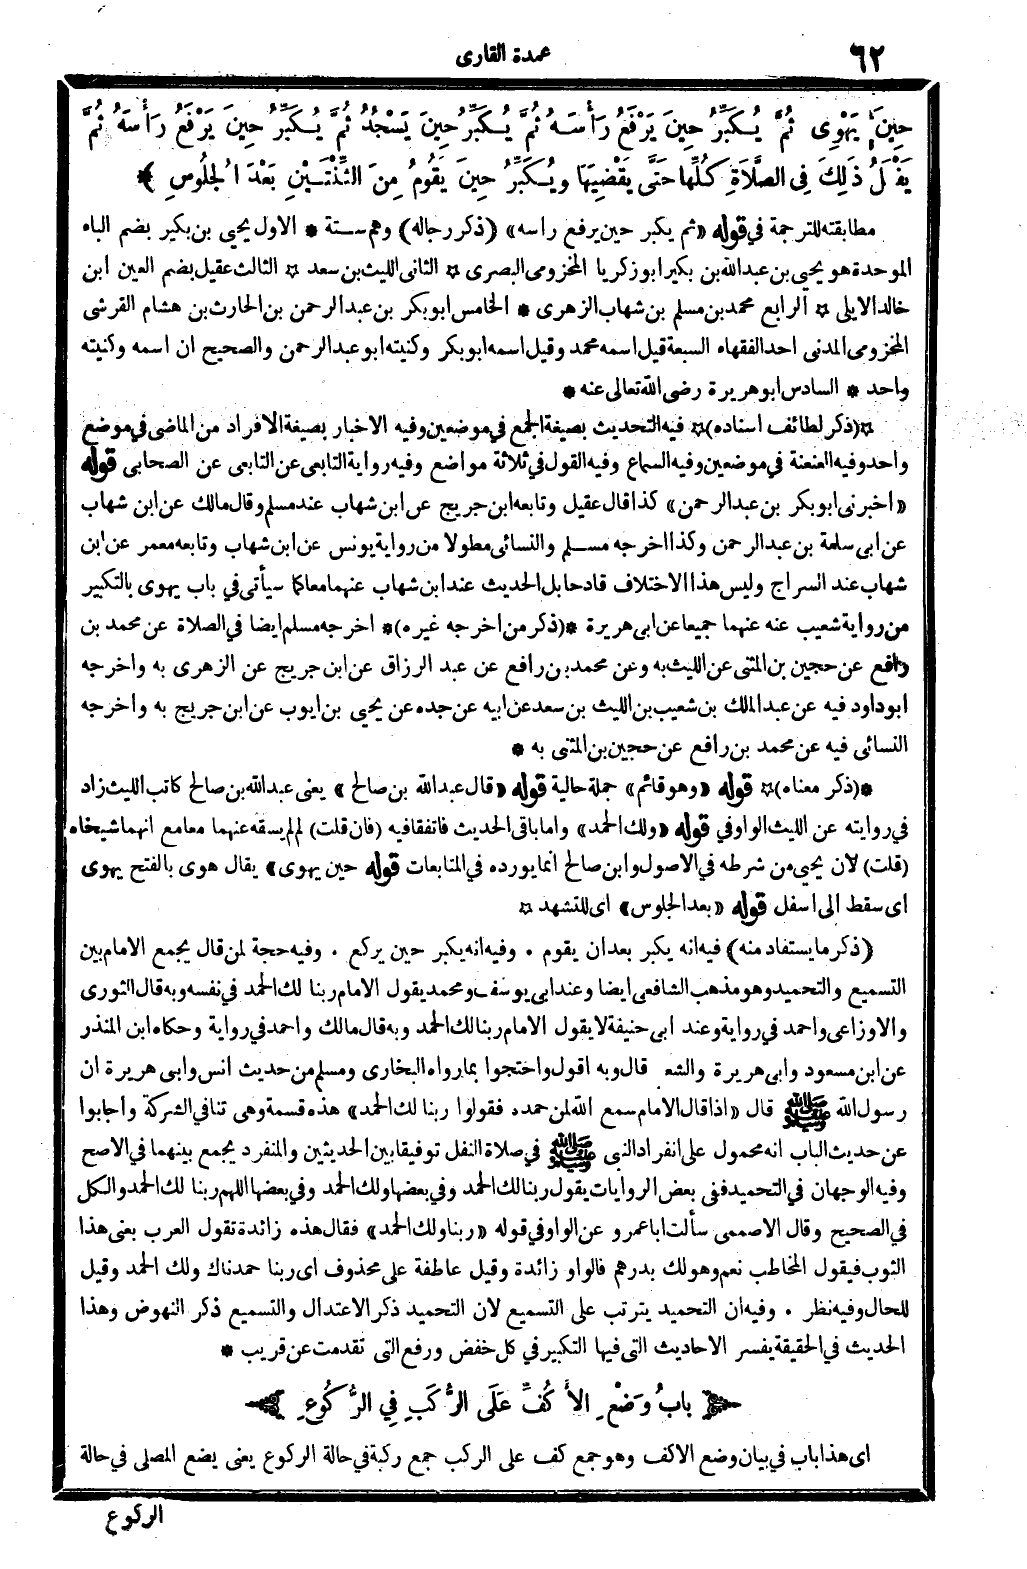 ٦٢
عمدة القارى
حِينَ يَهْوِى ثُمَّ يُكَبِّرُ حِينَ يَرْفَعُ رَأْسَهُ ثُمَّ يُكَبِّرُ حِينَ يَسْجُدُ ثُمَّ يُكَبِّرُ حِينَ يَرْفَعُ رَأْسَهُ ثُمَّ
يَفْعَلُ ذَلِكَ فِى الصَّلَاةِ كُلِّهَا حَتَّى يَقْضِيَهَا ويُكَبِّرُ حِينَ يَقُومُ مِنَ الثِّنْتَيْنِ بَعْدَ الْجُلُوسِ ﴾*
مطابقته للترجمة في قوله «ثم يكبر حين يرفع راسه» (ذكر رجاله) وهم ستة * الاول يحيى بن بكير بضم الباء
الموحدة هو يحيى بن عبد الله بن بكير ابو زكريا المخزومى البصرى ☆ الثانى الليث بن سعد ☆ الثالث عقيل بضم العين ابن
خالد الايلى ☆ الرابع محمد بن مسلم بن شهاب الزهرى * الخامس ابو بكر بن عبد الرحمن بن الحارث بن هشام القرشى
المخزومى المدنى احد الفقهاء السبعة قيل اسمه محمد وقيل اسمه ابو بكر وكنيته ابو عبد الرحمن والصحيح ان اسمه وكنيته
واحد * السادس ابو هريرة رضى الله تعالى عنه *
☆(ذكر لطائف اسناده)☆ فيه التحديث بصيغة الجمع في موضعين وفيه الاخبار بصيغة الافراد من الماضى في موضع
واحد وفيه العنعنة في موضعين وفيه السماع وفيه القول في ثلاثة مواضع وفيه رواية التابعى عن التابعى عن الصحابى قوله
«اخبرنى ابو بكر بن عبد الرحمن» كذا قال عقيل وتابعه ابن جريج عن ابن شهاب عند مسلم وقال مالك عن ابن شهاب
عن ابى سلمة بن عبد الرحمن وكذا اخرجه مسلم والنسائى مطولا من رواية يونس عن ابن شهاب وتابعه معمر عن ابن
شهاب عند السراج وليس هذا الاختلاف قادحا بل الحديث عند ابن شهاب عنهما معا كما سيأتى في باب يهوى بالتكبير
من رواية شعيب عنه عنهما جميعا عن ابى هريرة *(ذكر من اخرجه غيره)* اخرجه مسلم ايضا في الصلاة عن محمد بن
رافع عن حجين بن المثنى عن الليث به وعن محمد بن رافع عن عبد الرزاق عن ابن جريج عن الزهرى به واخرجه
ابو داود فيه عن عبد الملك بن شعيب بن الليث بن سعد عن ابيه عن جده عن يحيى بن ايوب عن ابن جريج به واخرجه
النسائى فيه عن محمد بن رافع عن حجين بن المثنى به *
*(ذكر معناه)☆ قوله «وهو قائم» جملة حالية قوله «قال عبد الله بن صالح» يعنى عبد الله بن صالح كاتب الليث زاد
في روايته عن الليث الواو في قوله «ولك الحمد» واما باقى الحديث فاتفقا فيه (فان قلت) لم لم يسقه عنهما معا مع انهما شيخاه
(قلت) لان يحيى من شرطه في الاصول وابن صالح انما يورده في المتابعات قوله حين يهوى» يقال هوى بالفتح يهوى
اى سقط الى اسفل قوله «بعد الجلوس» اى للتشهد ☆
(ذكر ما يستفاد منه) فيه انه يكبر بعد ان يقوم . وفيه انه يكبر حين يركع . وفيه حجة لمن قال يجمع الامام بين
التسميع والتحميد وهو مذهب الشافعى ايضا وعند ابى يوسف ومحمد يقول الامام ربنا لك الحمد في نفسه وبه قال الثورى
والاوزاعى واحمد في رواية وعند ابى حنيفة لا يقول الامام ربنا لك الحمد وبه قال مالك واحمد في رواية وحكاه ابن المنذر
عن ابن مسعود وابى هريرة والشع قال وبه اقول واحتجوا بما رواه البخارى ومسلم من حديث انس وابى هريرة ان
رسول الله ﷺ قال «اذا قال الامام سمع الله لمن حمده فقولوا ربنا لك الحمد» هذه قسمة وهى تنافى الشركة واجابوا
عن حديث الباب انه محمول على انفراد النبى ﷺ في صلاة النفل توفيقا بين الحديثين والمنفرد يجمع بينهما في الاصح
وفيه الوجهان في التحميد ففى بعض الروايات يقول ربنا لك الحمد وفي بعضها ولك الحمد وفي بعضها اللهم ربنا لك الحمد والكل
في الصحيح وقال الاصمعى سألت ابا عمرو عن الواو في قوله «ربنا ولك الحمد» فقال هذه زائدة تقول العرب بعنى هذا
الثوب فيقول المخاطب نعم وهو لك بدرهم فالواو زائدة وقيل عاطفة على محذوف اى ربنا حمدناك ولك الحمد وقيل
للحال وفيه نظر . وفيه ان التحميد يترتب على التسميع لان التحميد ذكر الاعتدال والتسميع ذكر النهوض وهذا
الحديث في الحقيقة يفسر الاحاديث التى فيها التكبير في كل خفض ورفع التى تقدمت عن قريب *
بابُ وَضْعِ الأَكُفِّ عَلَى الرُّكَبِ فِي الرُّكُوعِ
اى هذا باب في بيان وضع الاكف وهو جمع كف على الركب جمع ركبة في حالة الركوع يعنى يضع المصلى في حالة
الركوع